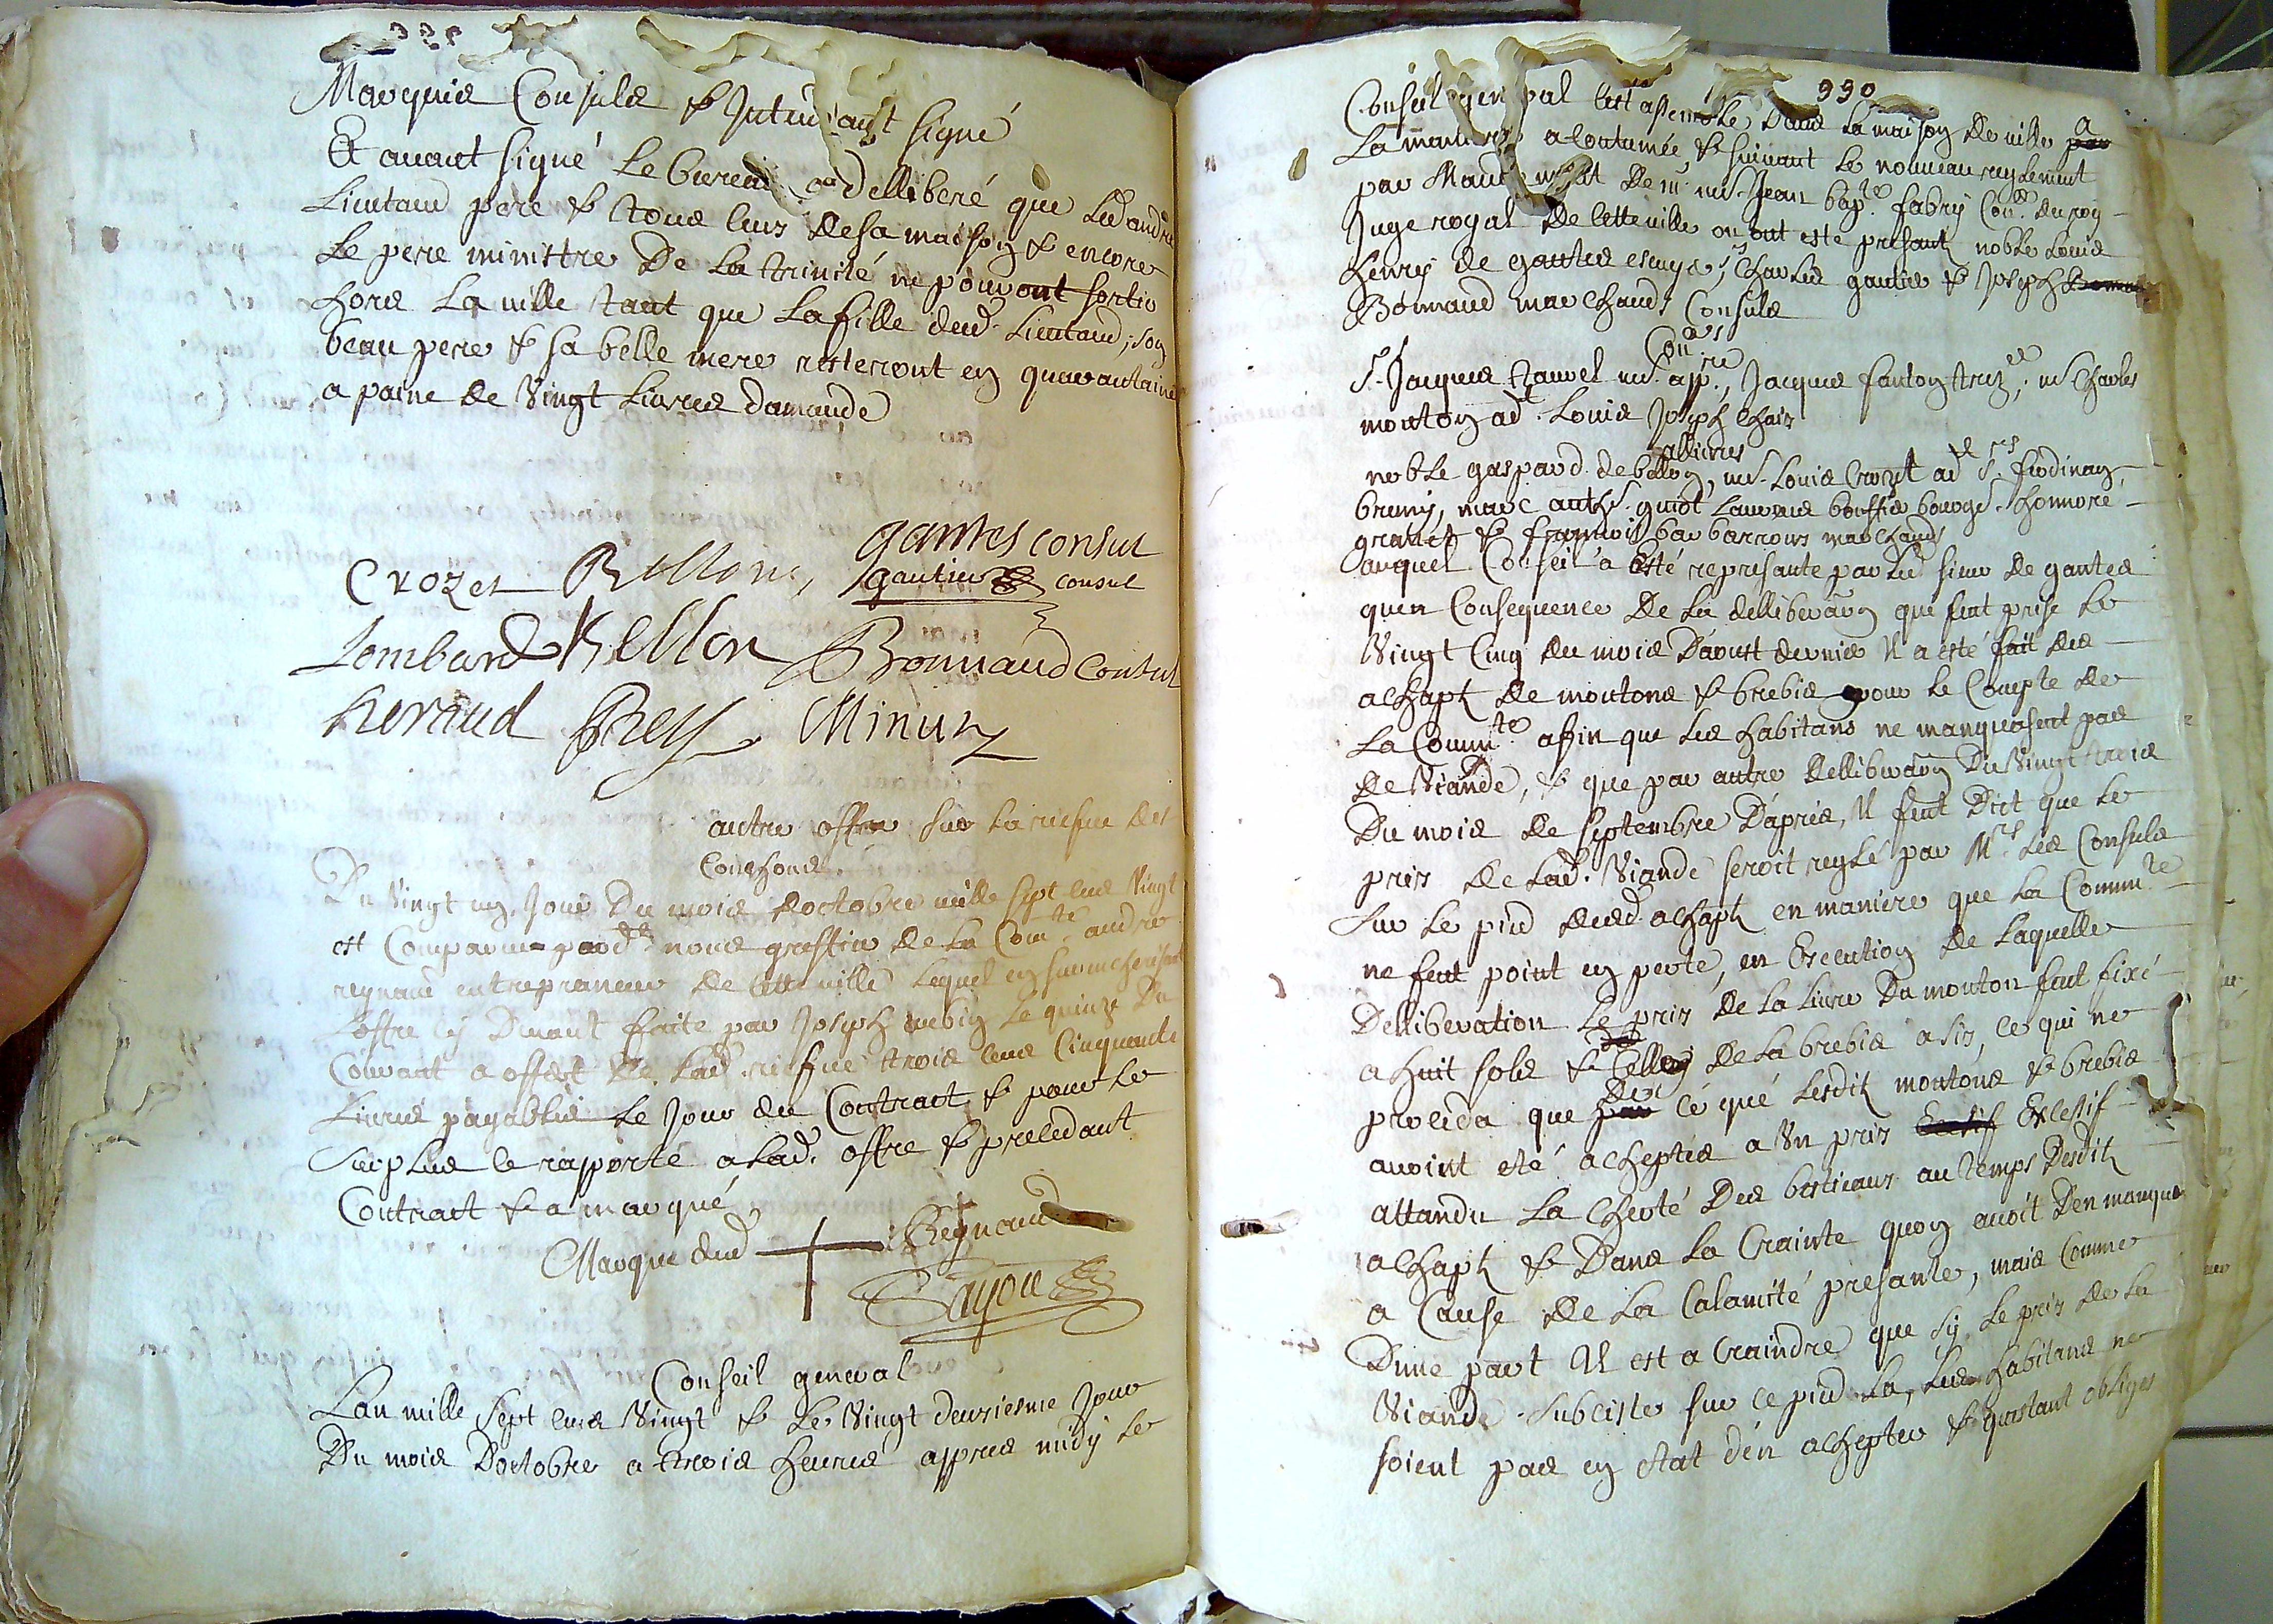 Marquis Consuls & Intendant signé
Et avant signé Le bureau a delliberé que Led andré
Lieutaud pere & tous ceus de sa maison & encore
Le pere ministre De La trinité ne pouront sortir
hors La ville tant que La fille dud. Lieutaud, son
beau pere & sa belle mere resteront en quarantaine
a paine de Vingt Livres damande
gantes consul
Crozet Bellon, gautier consul
Lombard Bellon Bonnaud Consul
heraud Rey Minuty
autre offre sur La riesfue des
Couchons
Du Vingt un Jour Du mois doctobre mille sept cens Vingt
est Comparu pard.t nous greffier de La Com.té andré
regnaud entrepreneur de cette ville Lequel en
Loffre cy Devant faite par Joseph aubin Le quinze Du
Courant a offert de Lad. riesfue trois cens Cinquante
Livres payables Le Jour du Contract & pour Le
surplus ce rapporte a Lad. offre & precedant
Contract & a marqué
Marque dud + Regnaud
Sayou
Conseil general
Lan mille sept cens Vingt & Le Vingt deusiesme Jour
Du mois Doctobre a trois heures appres midy Le
990
Conseil general cest assemblé Dans La maison de ville a
La maniere acoutumée, & suivant Le nouveau reglement
par Mandement de m.r m.e Jean bap.te fabry Con.er du roy
Juge royal De cette ville ou ont este presants noble Louis
henry de gantes escuyer, Charles gautier & Joseph
Bonnaud marchands Consuls
Con.ers
S.r Jacques tauvel m.e app.re, Jacques fauton, m.e Charles
mouton ad.t Louis Joseph Chais
allivres
noble gaspard de bellon, m.e Louis Crozet ad.t S.rs ferdinan
bruny, marc anth.e guiot Laurens bouffier bourg.s honnoré
granet & francois barbarrous marchands
auquel Conseil a esté represante par Led sieur de gantes
quen Consequence De La delliberaon qui feut prise Le
Vingt Cinq du mois Daoust dernier Il a esté fait des
achapts de moutons & brebis pour Le Compte de
La Comm.té affin que Les habitans ne manquasent pas
de Viande, & que par autre delliberaon Du Vingt trois
Du mois de septembre Dapres, Il feut Dict que Le
pris de Lad. Viande seroit reglé par M.rs Les Consuls
sur Le pied dud. achapts en maniere que La Comm.té
ne feut point en perte, en Execution de Laquelle
Delliberation Le pris de La Livre Du mouton feut fixé
a huit sols & Celle De La brebis a sis, ce qui ne
proceda que De cé que Lesdits moutons & brebis
avoint eté acheptés a Un pris Excessif
attandu La Cherté Des bestieaus au temps Desdits
achapts & Dans La Crainte quon avoit Den manquer
a Cause de La Calamité presante, mais Comme
Dune part Il est a Craindre que sy Le pris de La
Viande subciste sur ce pied La, Les habitans ne
soient pas en état d'en achepter & questant obliges